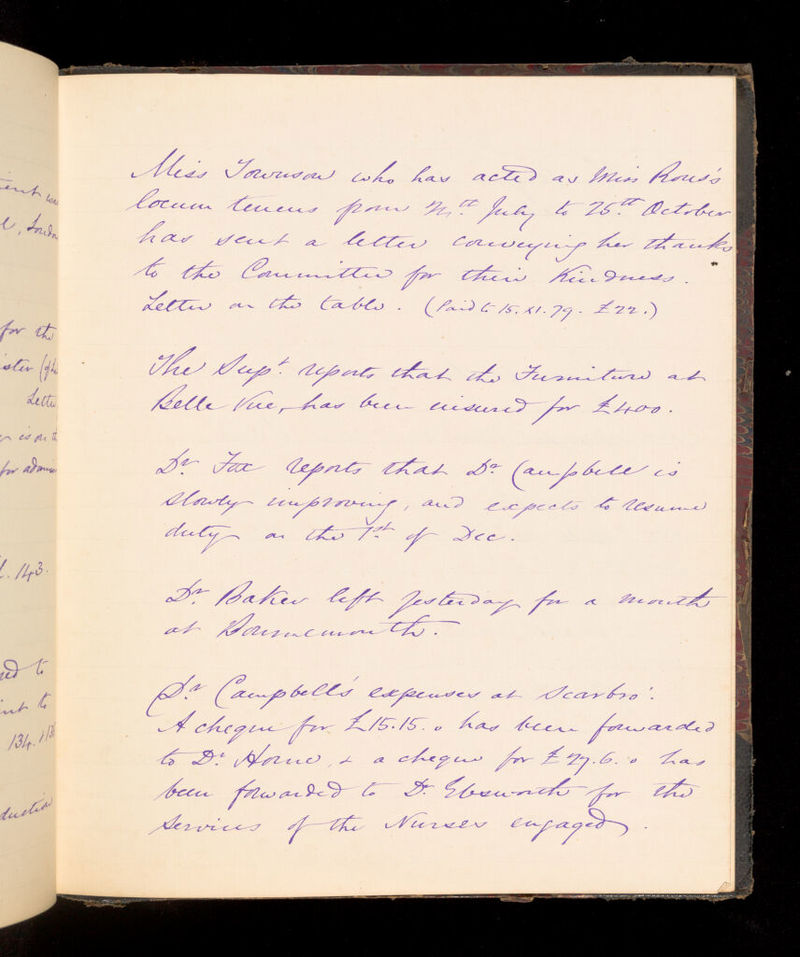 ient was
l, London
for the
ister
Letter
is on th
for admiss
l. 143.
ed to
ent to
134. + 13
duction
Miss Townson who has acted as Miss Rous's
locum tenens from July to 25th October
has sent a letter conveying her thanks
to the Committee for their Kindness.
Letter on the table. (Paid to 15. XI. 79. £22.)
The Supt. reports that the Furniture at
Belle Vue, has been insured for £400.
Dr Fox reports that Dr Campbell is
slowly improving, and expects to resume
duty on the 1st of Dec.
Dr. Baker left yesterday for a month
at Bournemouth.
Dr Campbell's expenses at Scarbro'.
A cheque for £15.15.0 has been forwarded
to Dr. Horne, & a cheque for £27.6.0 has
been forwarded to Dr. Ebsworth for the
services of the Nurses engaged.